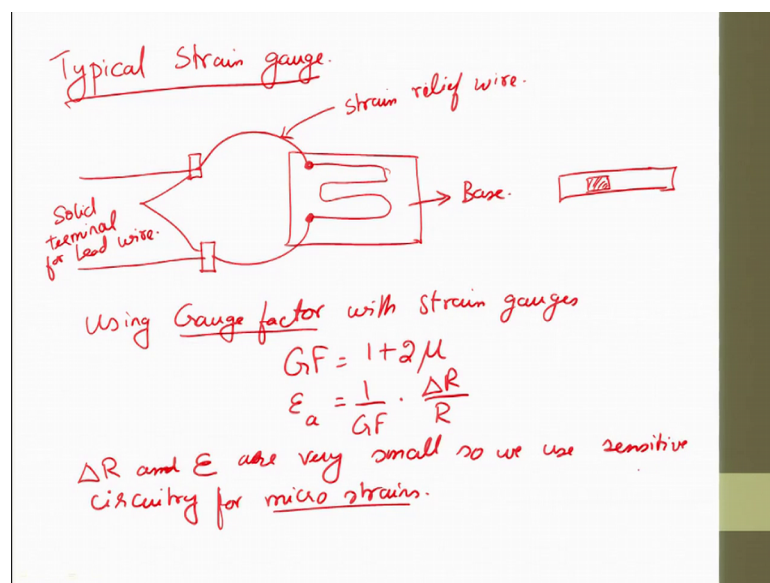 Typical Strain gauge.
Strain relief wire.
Base.
Solid
terminal
for Lead wire.
Using Gauge factor with strain gauges
GF = 1+2μ
εa = 1/GF · ΔR/R
ΔR and ε are very small so we use sensitive
circuitry for micro strains.